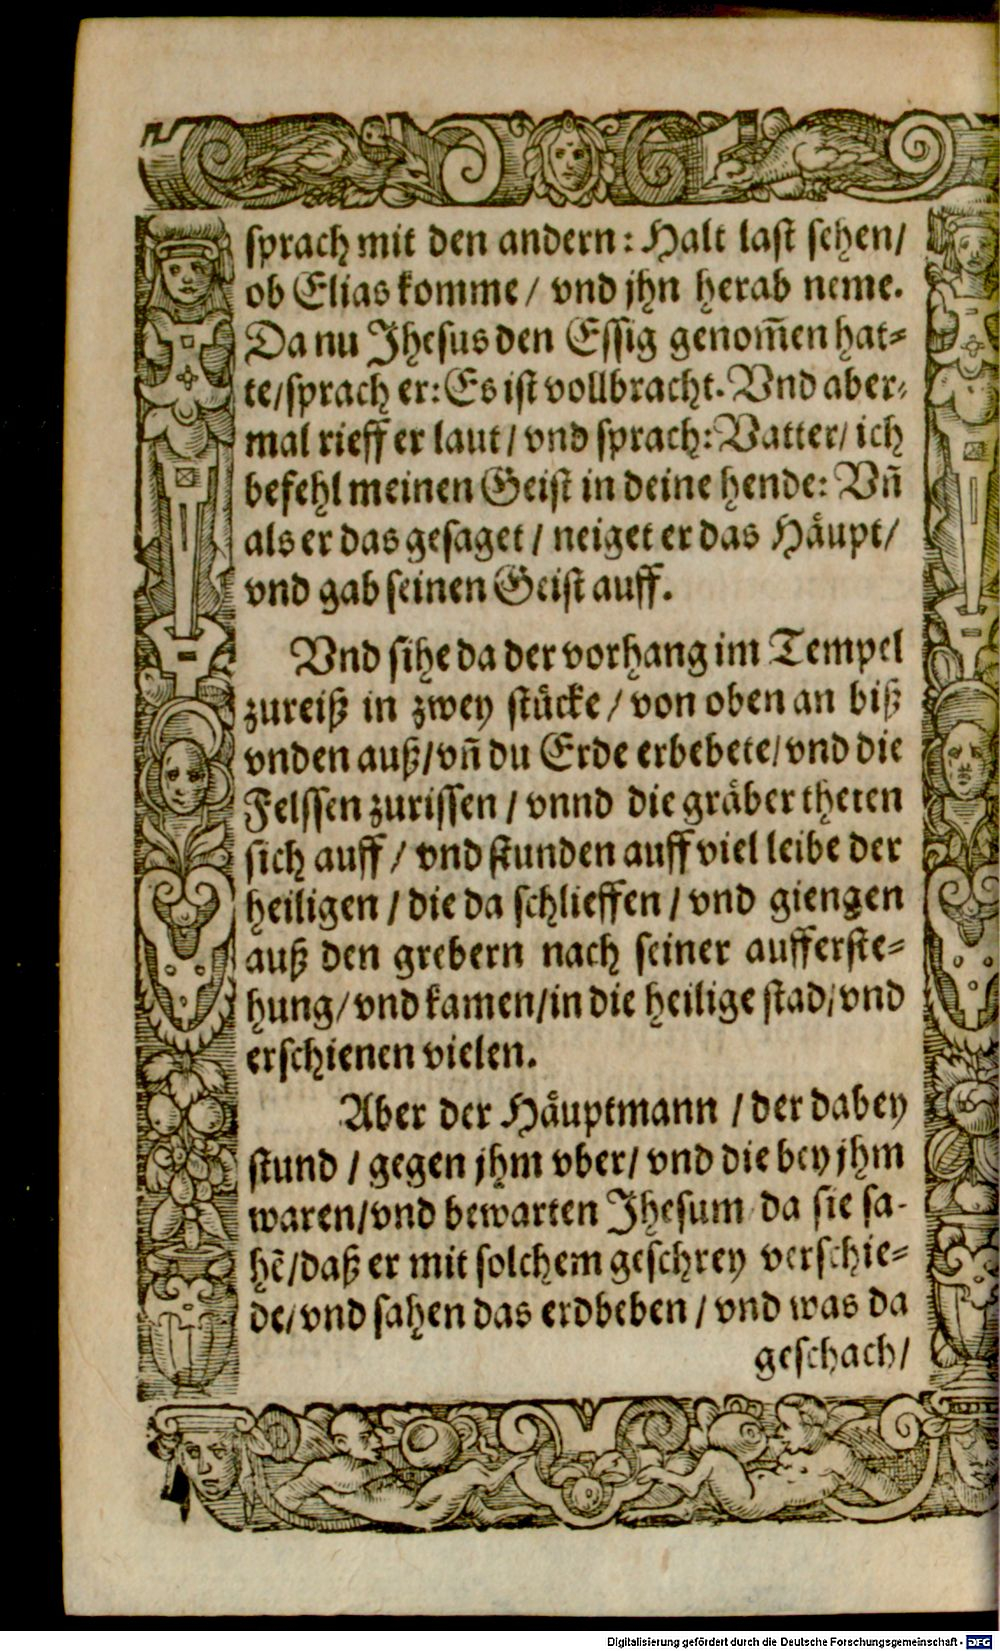 sprach mit den andern: Halt last sehen/
ob Elias komme / vnd jhn herab neme.
Da nu Jhesus den Essig genom̄en hat-
te/sprach er: Es ist vollbracht. Vnd aber-
mal rieff er laut / vnd sprach: Vatter/ ich
befehl meinen Geist in deine hende: Vn̄
als er das gesaget / neiget er das Häupt/
vnd gab seinen Geist auff.
Vnd sihe da der vorhang im Tempel
zureiß in zwey stücke / von oben an biß
vnden auß/vn̄ du Erde erbebete/vnd die
Felssen zurissen / vnnd die gräber theten
sich auff / vnd stunden auff viel leibe der
heiligen / die da schlieffen / vnd giengen
auß den grebern nach seiner aufferste-
hung/vnd kamen/in die heilige stad/vnd
erschienen vielen.
Aber der Häuptmann / der dabey
stund / gegen jhm vber/ vnd die bey jhm
waren/vnd bewarten Jhesum da sie sa-
hē/daß er mit solchem geschrey verschie-
de/vnd sahen das erdbeben / vnd was da
geschach/
Digitalisierung gefördert durch die Deutsche Forschungsgemeinschaft - DFG